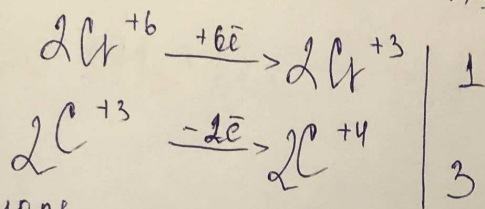 2Cr⁺⁶ +6ē → 2Cr⁺³ | 1
2C⁺³ -2ē → 2C⁺⁴ | 3